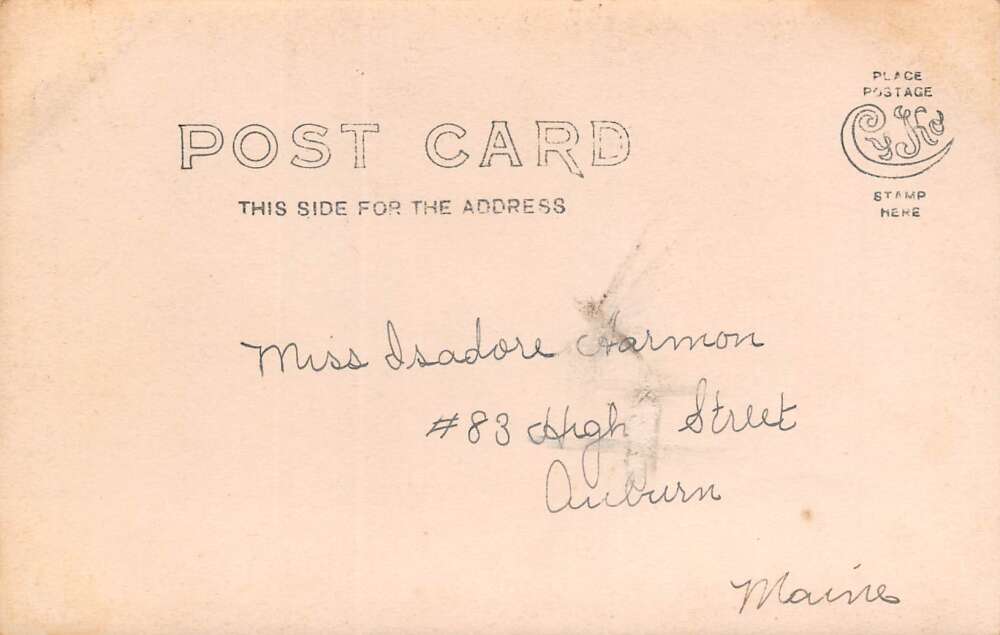 POST CARD
THIS SIDE FOR THE ADDRESS
PLACE
POSTAGE
CyKo
STAMP
HERE
Miss Isadore Harmon
#83 High Street
Auburn
Maine